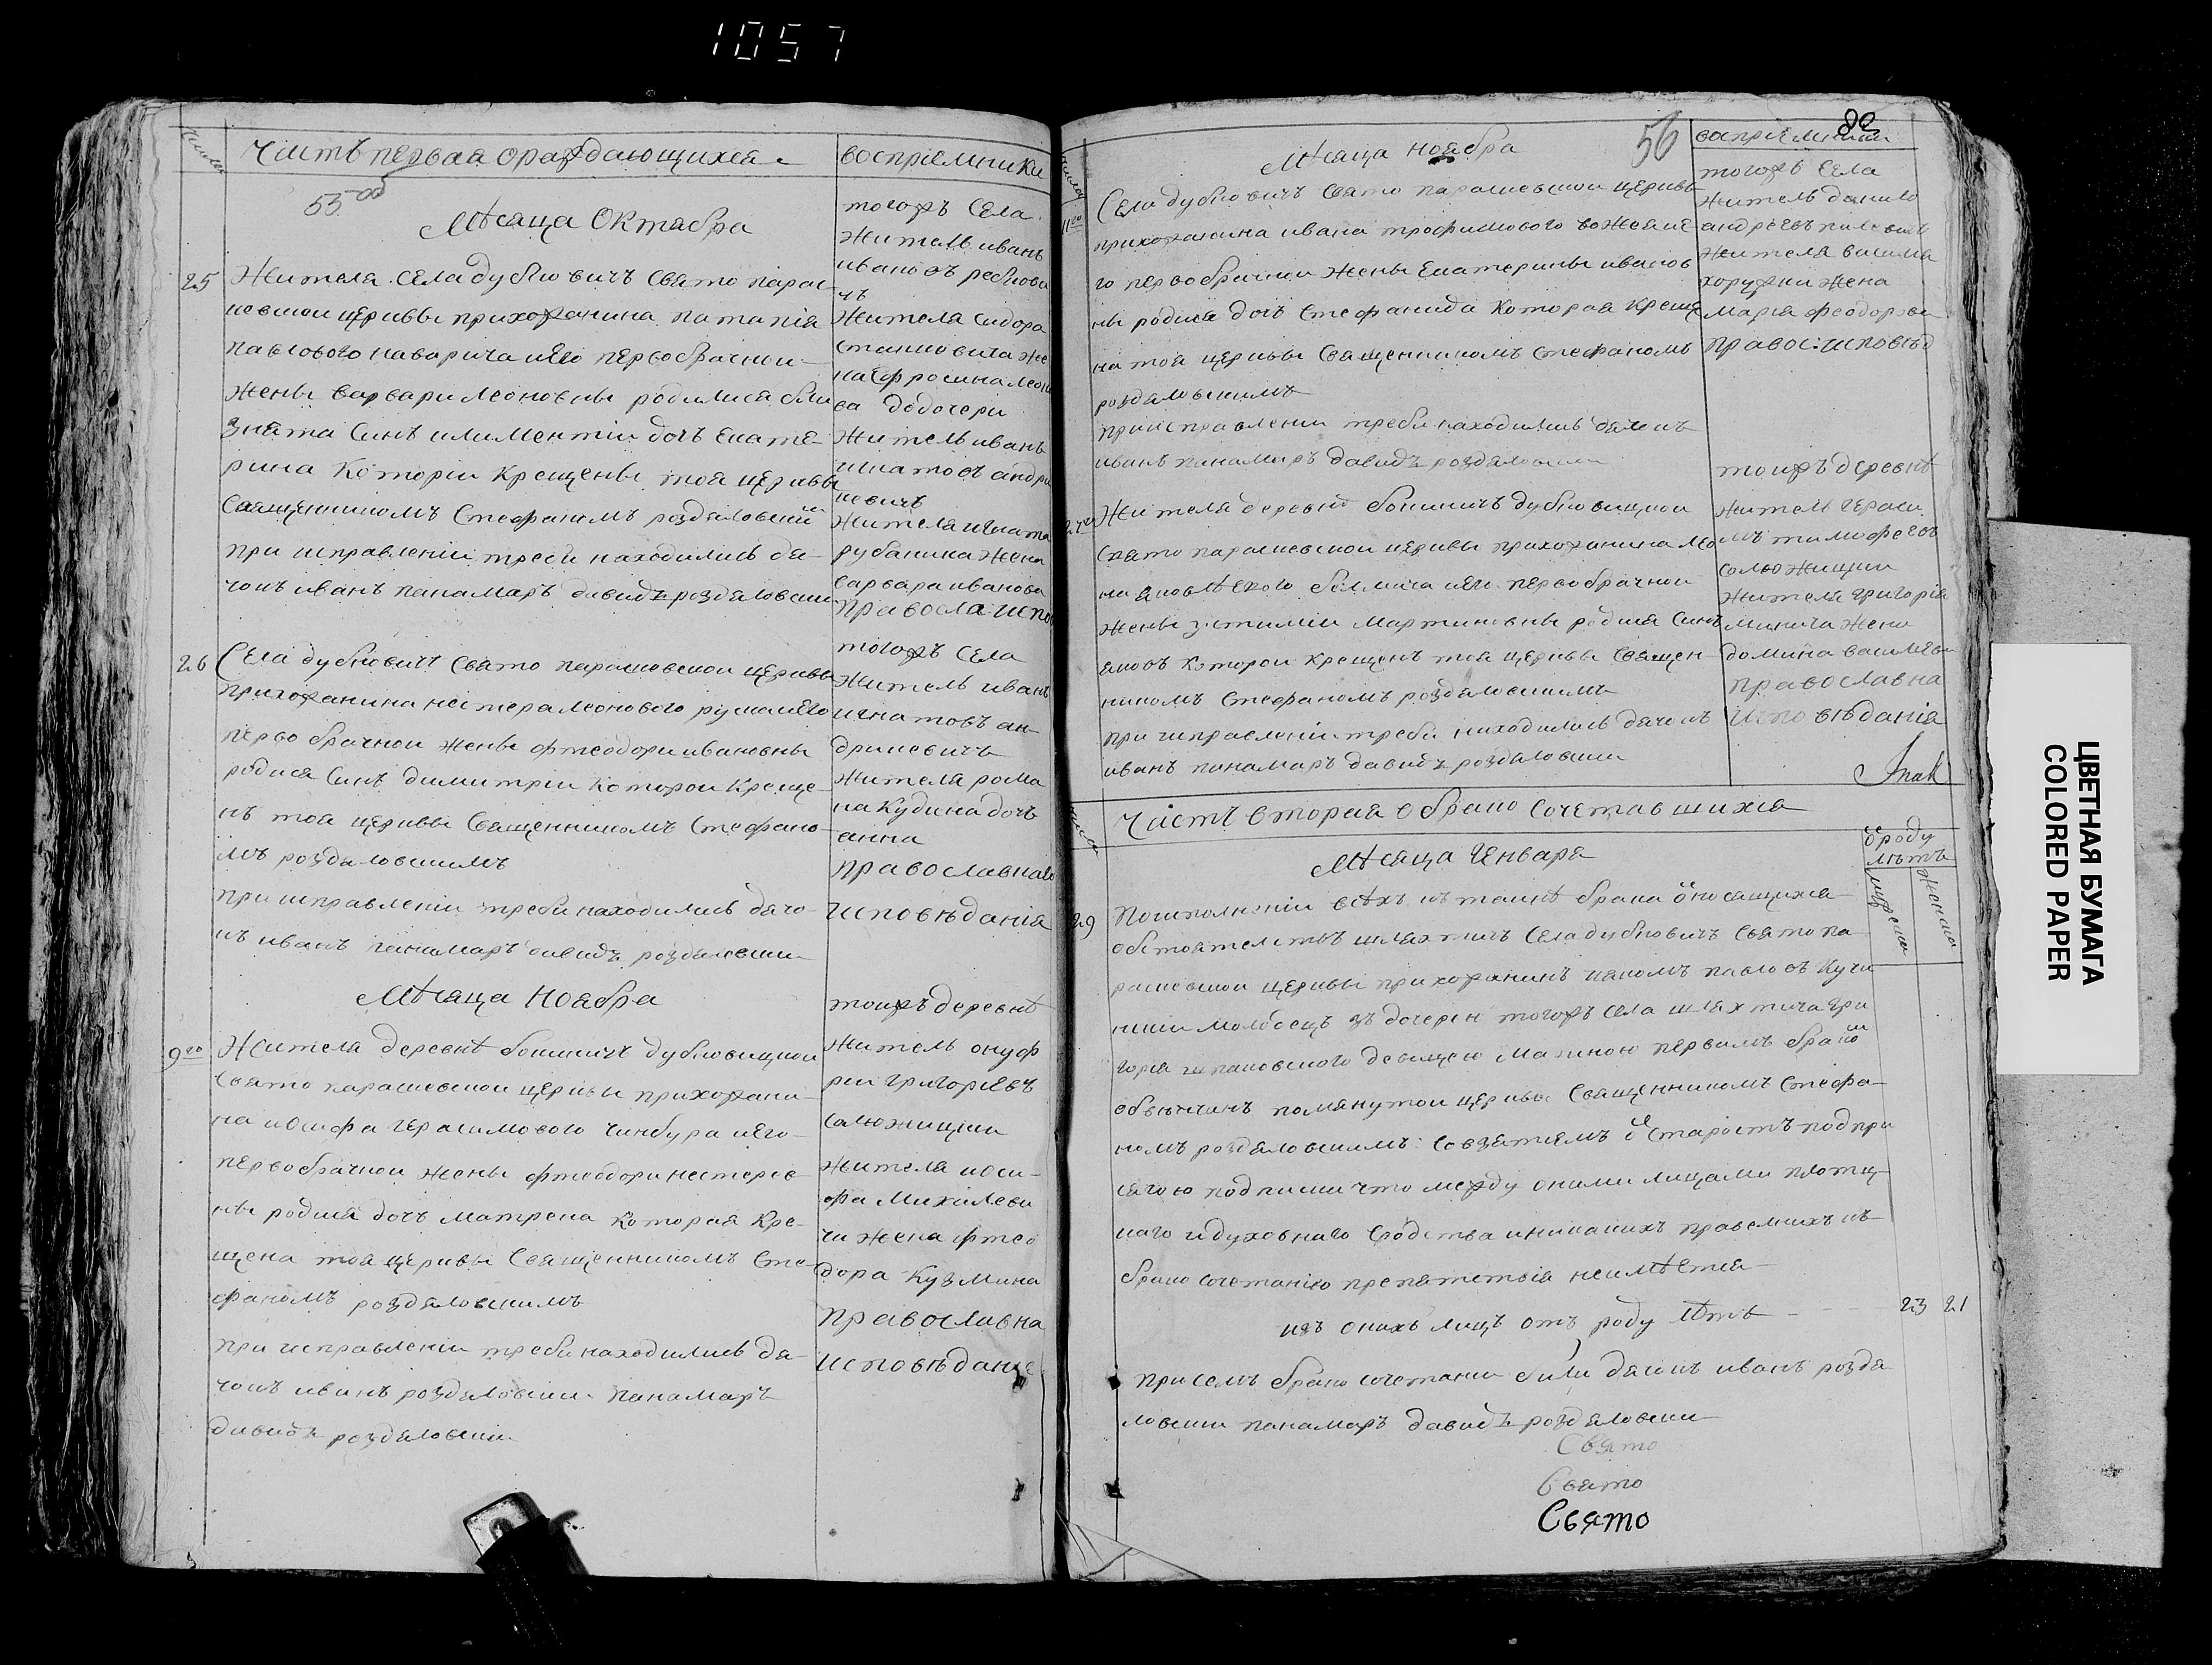 1057
числа
Часть первая о раждающихся
восприемники
55
Мѣсяца Октября
25
Жителя села дублювичъ свято парас
кевской церквы прихожанина патапія
павлового наварича и его первобрачной
жены варвари леоновны родилися бли
знята синъ климентіи дочъ екате-
рина которіи крещены тоя церквы
священникомъ стефаномъ роздяловскимъ
при исправленіи треби находились дя-
чокъ иванъ панамаръ давидъ роздяловски
тогожъ села
житель иванъ
ивановъ
жителя сидора
станковича же
на ефросина леоно
ва до дочери
житель иванъ
игнатовъ андри
кевичъ
жителя игната
рубаника жена
варвара иванова
правосла: испо
26
Села дублювичъ свято параскевской церквы
прихожанина нестера леонового и его
перво брачной жены фтеодори ивановны
родися синъ димитріи которой креще-
нъ тоя церквы священникомъ стефано-
мъ роздяловскимъ
при исправленіи треби находились дячо-
къ иванъ панамаръ давидъ роздяловски
тогожъ села
житель иванъ
игнатовъ ан-
дрикевичъ
жителя рома
на кудина дочъ
анна
православнаго
исповѣданія
Мѣсяца Ноября
9го
Жителя деревнѣ дублювицкой
свято параскевской церквы прихожани-
на иосифа герасимового чинбура и его
первобрачной жены фтеодори нестеров
ны родися дочъ матрена которая кре-
щена тоя церквы священникомъ сте-
фаномъ роздяловскимъ
при исправленіи треби находились дя-
чокъ иванъ роздяловски панамаръ
давидъ роздяловски
тоижъ деревнѣ
житель онуф
рей григоріевъ
жителя иоси-
фа михалеви
ча жена фтео
дора кузмина
православна
исповѣдание
числа
Мѣсяца ноября
56
восприемники
11го
Села дублювичъ свято параскевской церквы
прихожанина ивана трофимового и е
го первобрачной жены екатерины иванов
ны родися дочъ стефанида которая креще
на тоя церквы священникомъ стефаномъ
роздяловскимъ
при исправленіи треби находились дячокъ
иванъ панамаръ давидъ роздяловски
тогожъ села
житель данило
андреевъ
жителя васила
хоружи жена
марія феодорова
правос: исповѣд
Жителя деревнѣ дублювицкой
свято параскевской церквы прихожанина
и его первобрачной
жены мартиновны родися синъ
яковъ которой крещенъ тоя церквы священ
никомъ стефаномъ роздяловскимъ
при исправленіи треби находились дячокъ
иванъ панамаръ давидъ роздяловски
тоижъ деревнѣ
житель гераси
мъ тимофеевъ
жителя григорія
минича жена
домина василева
православна
исповѣданія
числа
Часть вторая о брако сочетавшихся
Мѣсяца Генваря
от роду
лѣтъ
мужеска
женска
29
По исполненіи всѣхъ къ таинѣ брака относящихся
обстоятелствъ шляхтичъ села дублювичъ свято па
раскевской церквы прихожанинъ павловъ
молодецъ зъ дочерею тогожъ села шляхтича гри
горія девицею первимъ бракомъ
обвѣнчанъ помянутой церквы священникомъ стефа-
номъ роздяловскимъ со взятиемъ от старостъ подпри
сягою подписки что между оними лицами плотц-
каго и духовнаго сродства и никакихъ правелнихъ къ
брако сочетанію препятствія неимѣется
изъ онихъ лицъ отъ роду лѣтъ
23 21
при семъ брако сочетании били дячокъ иванъ розда
ловски панамаръ давидъ роздяловски
Свято
Свято
Свято
ЦВЕТНАЯ БУМАГА
COLORED PAPER